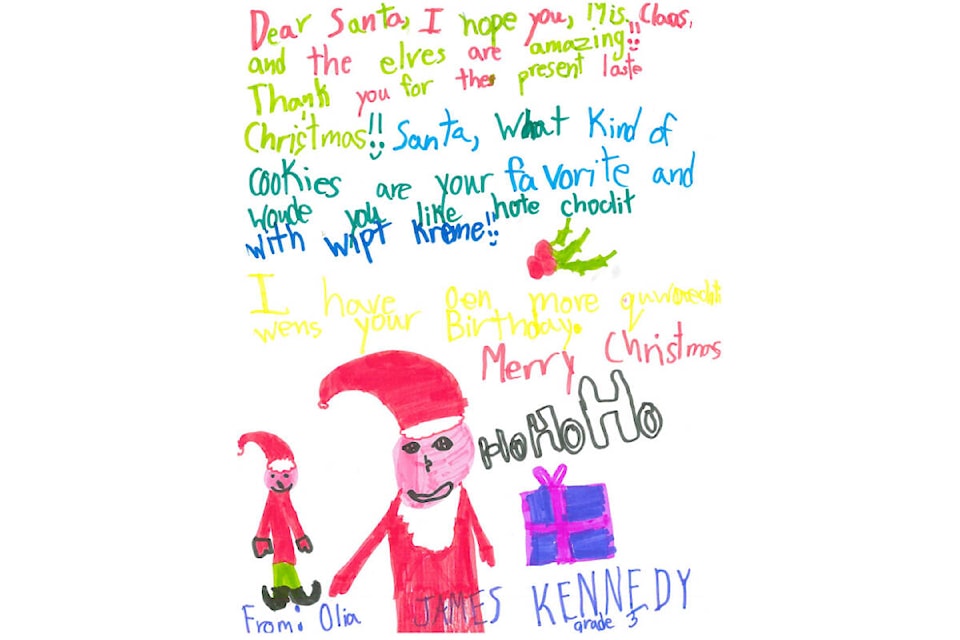 Dear Santa, I hope you, Mis. Claas,
and the elves are amazing!!
Thank you for the present laste
Christmas!! Santa, What Kind of
cookies are your favorite and
woude you like hote choclit
with wipt Kreme!!
I have Oen more
wens your Birthday.
Merry Christmas
HoHoHo
From: Olia JAMES KENNEDY
grade 3